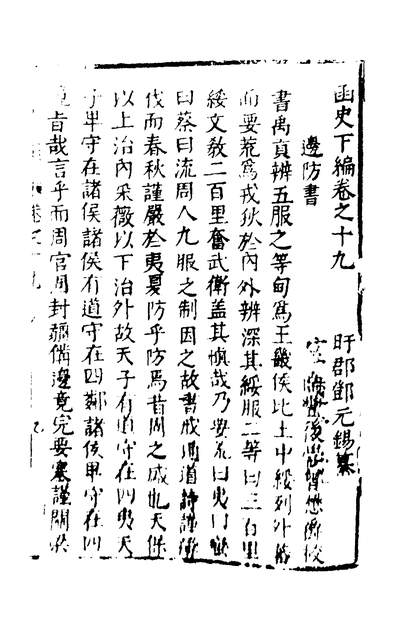 函史下編卷之十九
盱郡鄧元錫纂
後學 校
邊防書
書禹貢辨五服之等甸爲王畿侯比土中綏列外藩
而要荒爲戎狄於內外辨深其綏服二等曰三百里
綏文教二百里奮武衛蓋其慎哉乃要荒曰夷曰蠻
曰蔡曰流周人九服之制因之故書戒通道詩謹薄
伐而春秋謹嚴於夷夏防乎防焉昔周之盛也天保
以上治內采薇以下治外故天子有道守在四夷天
子卑守在諸侯諸侯有道守在四鄰諸侯卑守在四
竟旨哉言乎而周官周封疆備邊竟完要塞謹關梁